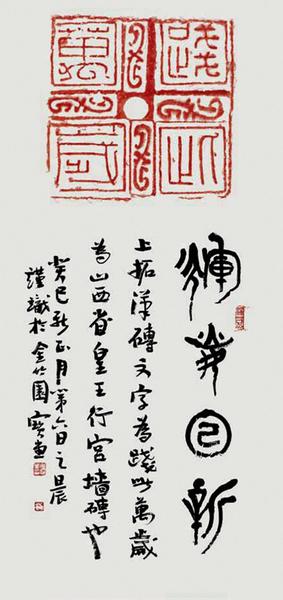 踐此
萬歲
煇日新
上拓漢磚文字為踐此萬歲
為山西省皇王行宮墻磚也
癸巳新正月第六日之晨
謹識於金竹園寶